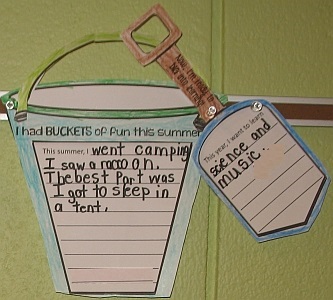 I had BUCKETS of fun this summer
This summer, I went camping
I saw a racoo on.
The best Part was
I got to sleep in
a tent.
This year, I want to learn
science and
music.